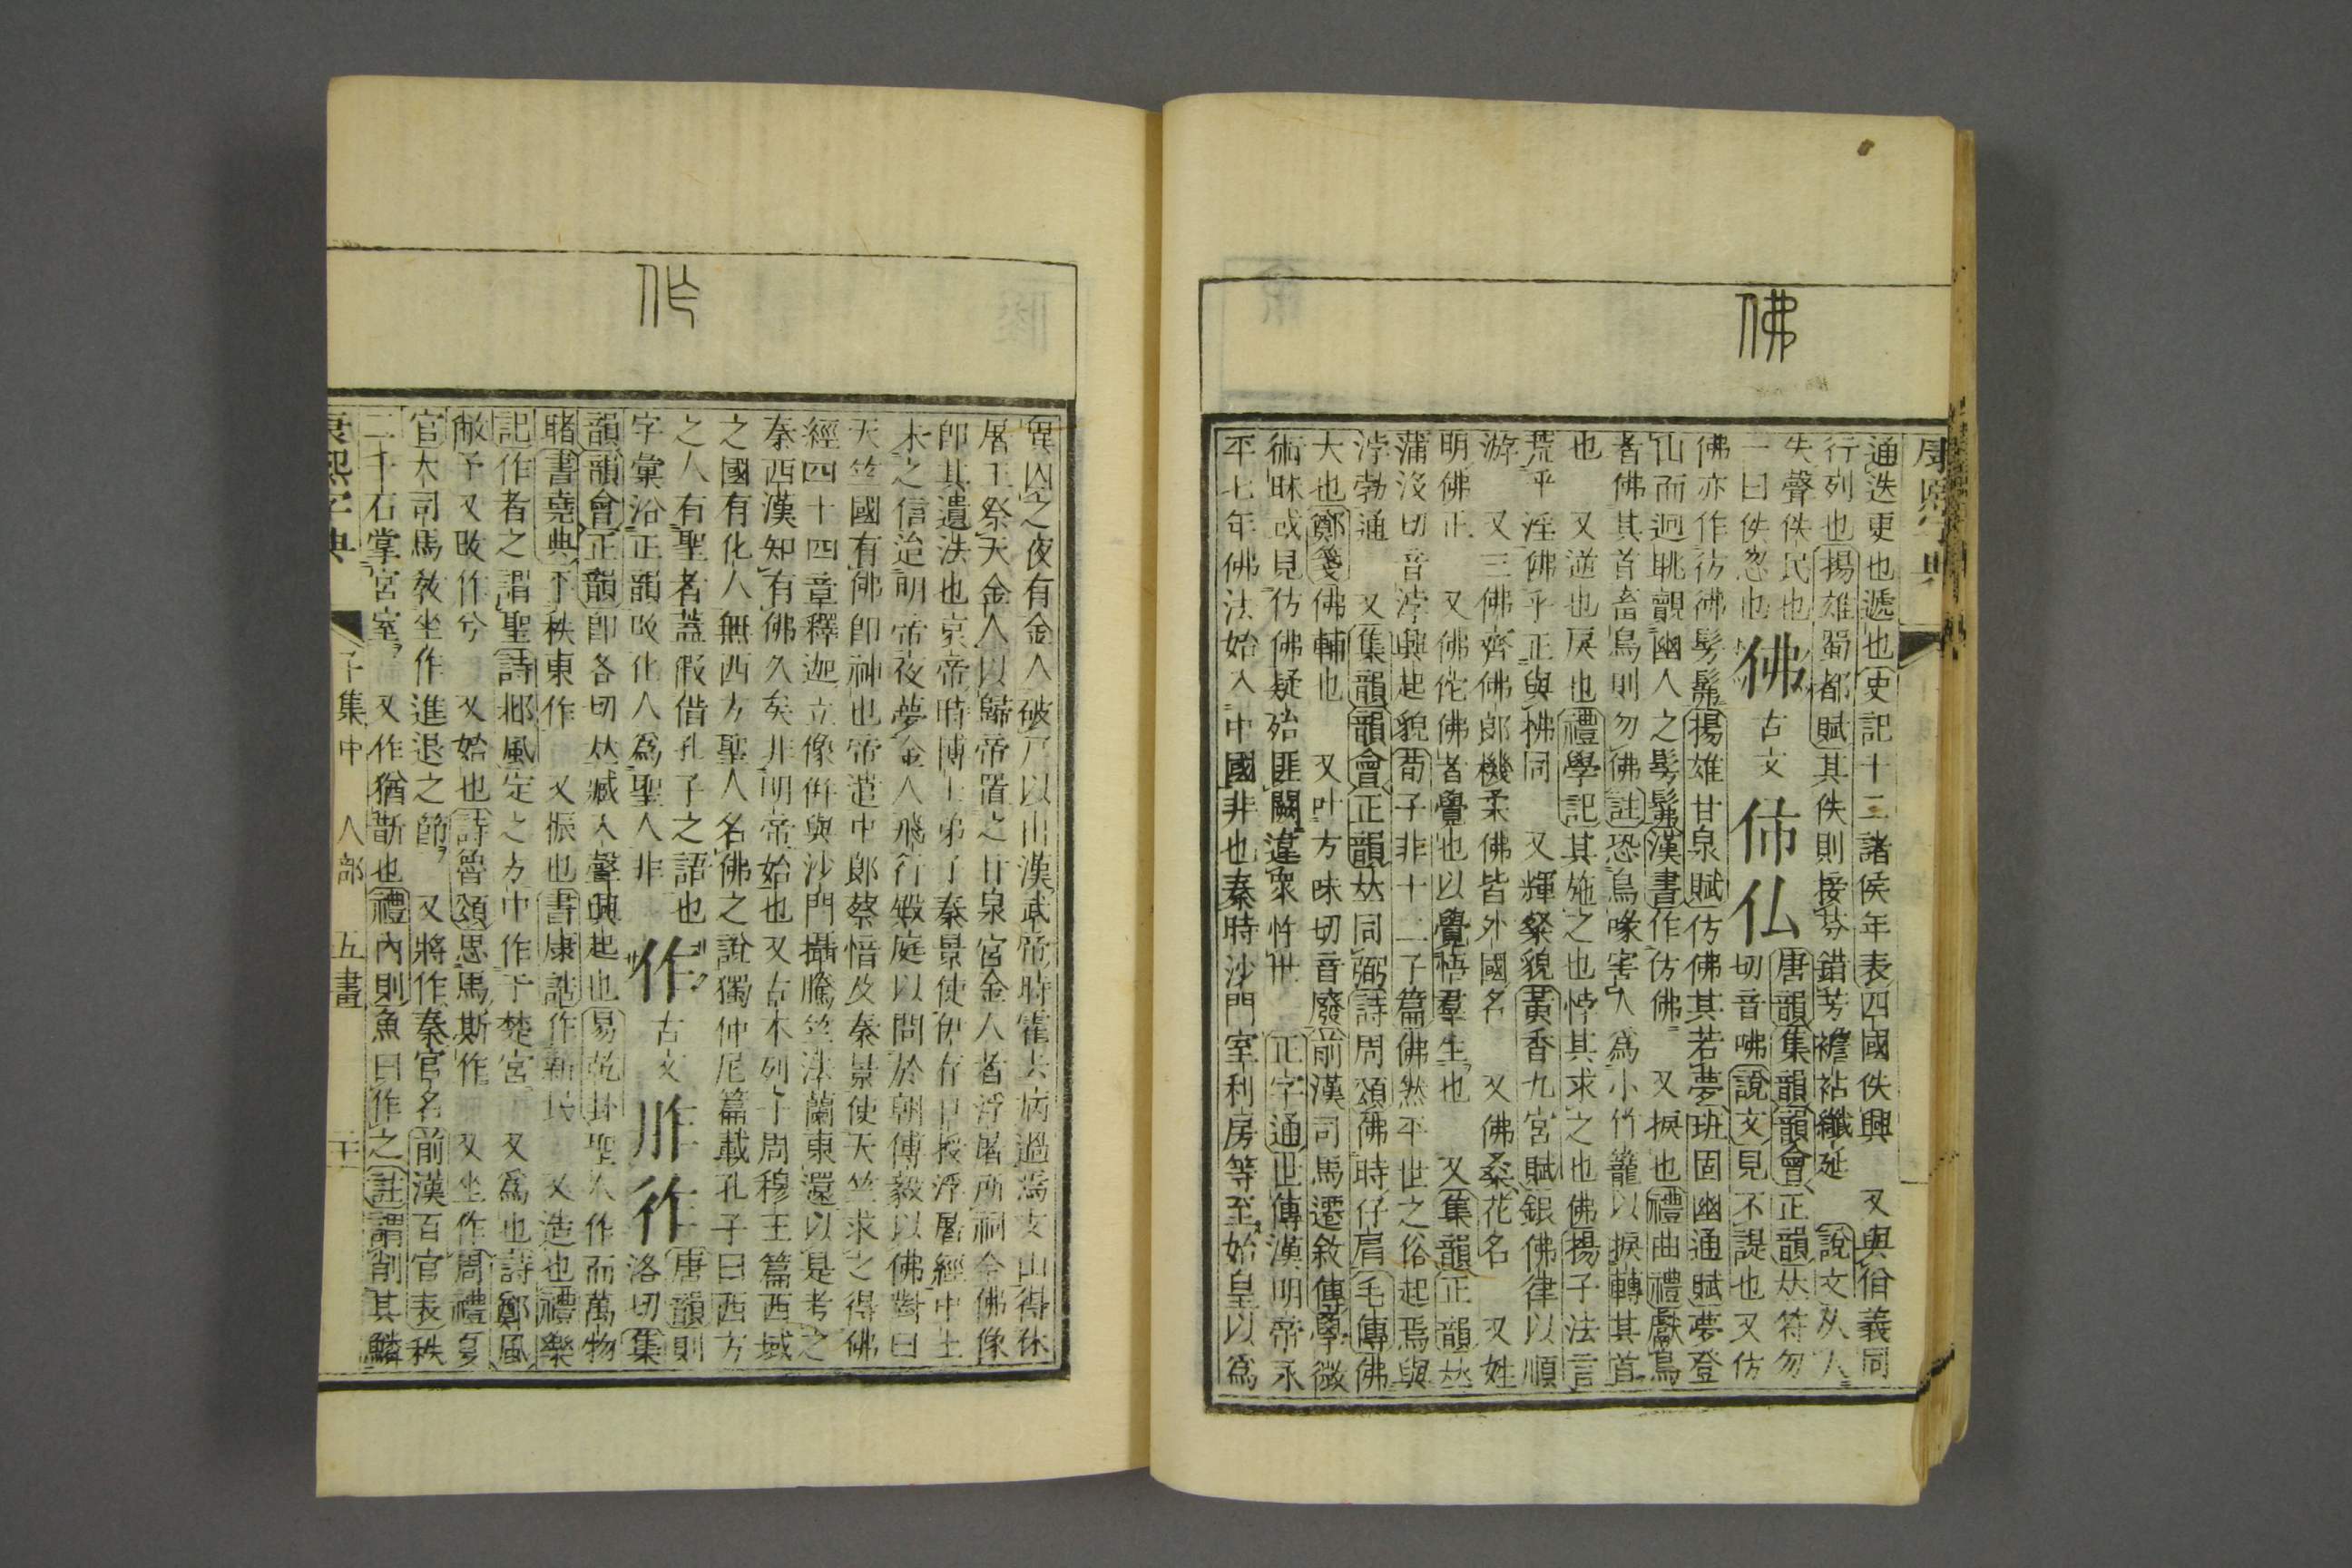 佛
通迭更也遞也史記十二諸侯年表四國佚興　又與佾義同
行列也揚雄蜀都賦其佚則接芬錯芳襜袩纖延　說文从人
失聲佚民也
一曰佚忽也
佛　古文　㑂仏　唐韻集韻韻會正韻𠀤符勿
切音咈說文見不諟也又仿
佛亦作彷彿髣髴揚雄甘泉賦仿佛其若夢班固幽通賦夢登
山而迥眺覿幽人之髣髴漢書作仿佛　又捩也禮曲禮獻鳥
者佛其首畜鳥則勿佛註恐鳥喙害人爲小竹籠以捩轉其首
也　又逆也戾也禮學記其施之也悖其求之也佛揚子法言
荒乎淫佛乎正與拂同　又輝粲貌黃香九宮賦銀佛律以順
游　又三佛齊佛郞機柔佛皆外國名　又佛桑花名　又姓
明佛正　又佛佗佛者覺也以覺悟羣生也　又集韻正韻𠀤
蒲沒切音浡興起貌荀子非十二子篇佛然平世之俗起焉與
浡勃通　又集韻韻會正韻𠀤同弼詩周頌佛時仔肩毛傳佛
大也鄭箋佛輔也　又叶方味切音廢前漢司馬遷敘傳學微
術昧或見仿佛疑殆匪闕違衆忤世　正字通世傳漢明帝永
平七年佛法始入中國非也秦時沙門室利房等至始皇以爲
作
異囚之夜有金人破戸以出漢武帝時霍去病過焉支山得休
屠王祭天金人以歸帝置之甘泉宮金人者浮屠所祠今佛像
卽其遺法也哀帝時博士弟子秦景使伊存口授浮屠經中土
未之信迨明帝夜夢金人飛行殿庭以問於朝傅毅以佛對曰
天竺國有佛卽神也帝遣中郞蔡愔及秦景使天竺求之得佛
經四十四章釋迦立像倂與沙門攝騰竺法蘭東還以是考之
秦西漢知有佛久矣非明帝始也又古本列子周穆王篇西域
之國有化人無西方聖人名佛之說獨仲尼篇載孔子曰西方
之人有聖者蓋假借孔子之語也
字彙沿正韻攺化人爲聖人非
作　古文　𠆯㣅　唐韻則
洛切集
韻韻會正韻卽各切𠀤臧入聲興起也易乾卦聖人作而萬物
睹書堯典平秩東作　又振也書康誥作新民　又造也禮樂
記作者之謂聖詩鄘風定之方中作于楚宮　又爲也詩鄭風
敝予又攺作兮　又始也詩魯頌思馬斯作　又坐作周禮夏
官大司馬敎坐作進退之節　又將作秦官名前漢百官表秩
二千石掌宮室　又作猶斮也禮內則魚曰作之註謂削其鱗
康熙字典　子集中　人部　五畫